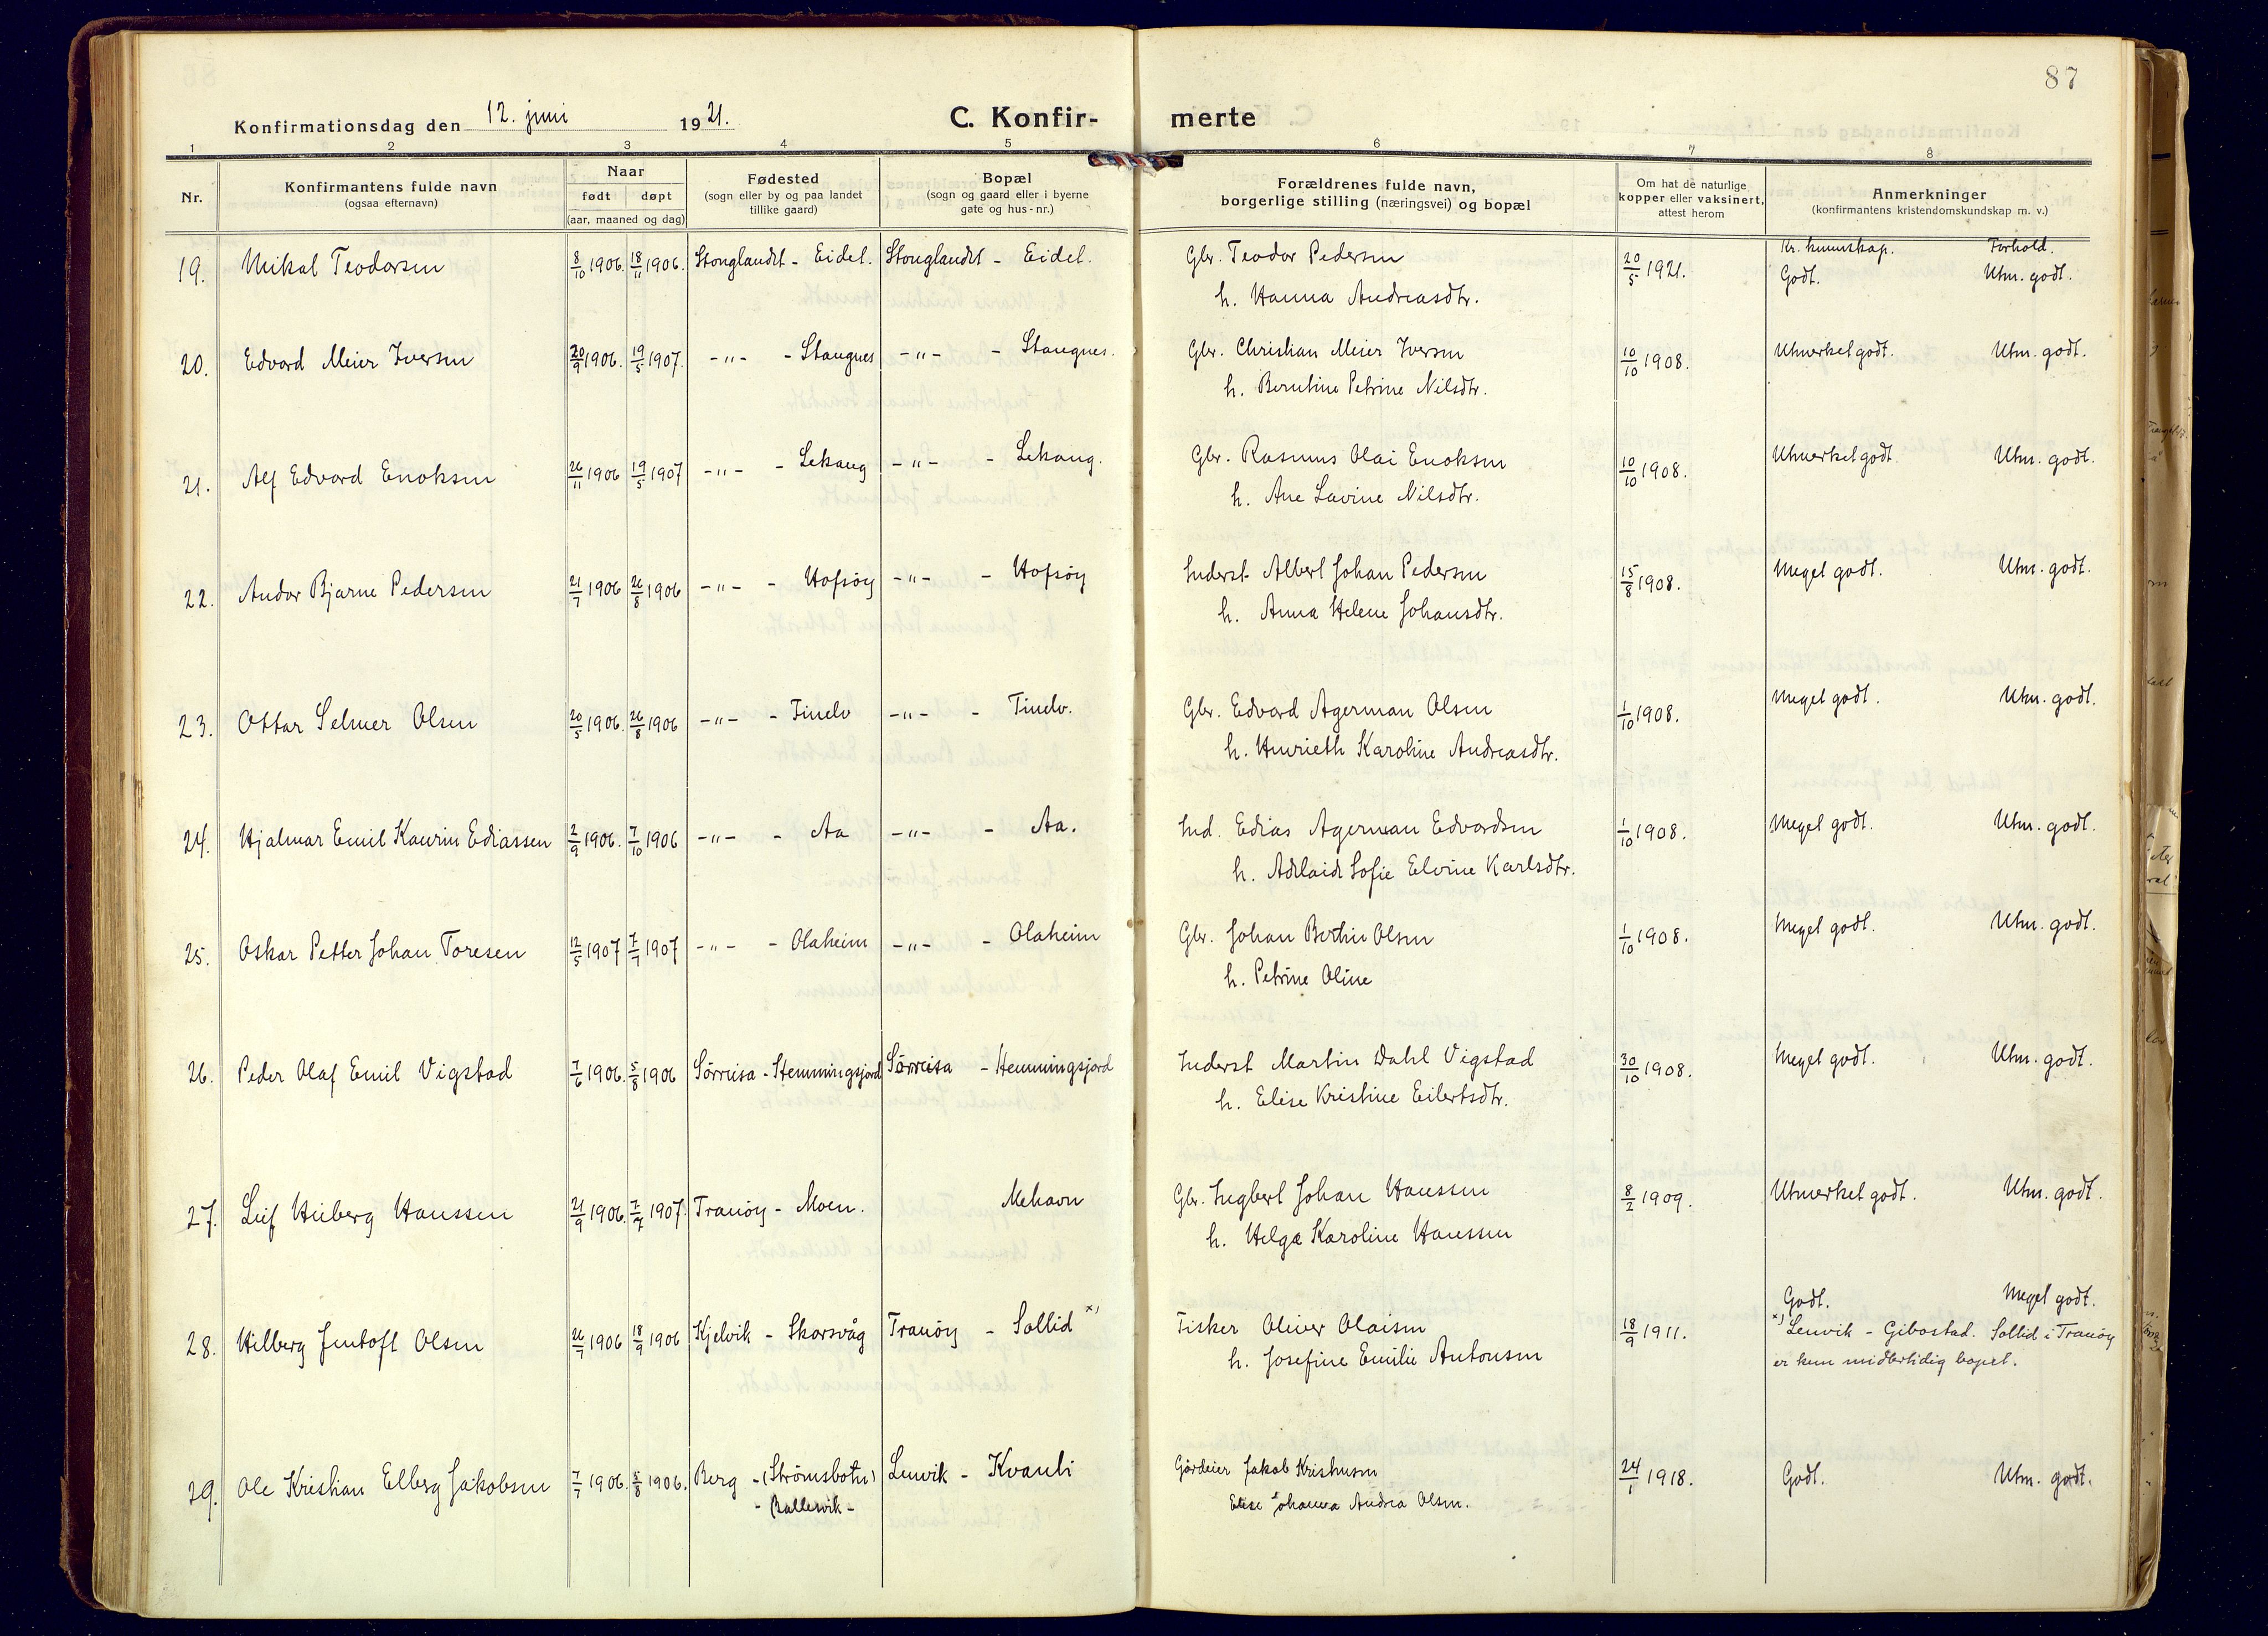 87
Konfirmationsdag den 12. juni 1921. C. Konfir- merte
1 2 3 4 5 6 7 8
Nr. Konfirmantens fulde navn (ogsaa efternavn) Naar født døpt (aar, maaned og dag) Fødested (sogn eller by og paa landet tillike gaard) Bopæl (sogn og gaard eller i byerne gate og hus-nr.) Forældrenes fulde navn, borgerlige stilling (næringsvei) og bopæl Om hat de naturlige kopper eller vaksinert, attest herom Anmerkninger (konfirmantens kristendomskundskap m. v.)
Kr. kunnskap. Forhold.
19. Mikal Teodorsen 8/10 1906. 18/11 1906. Stonglandet - Eidet. Stonglandet - Eidet. Gbr. Teodor Pedersen 20/5 1921. Godt. Utm. godt.
h. Hanna Andreasdtr.
20. Edvard Meier Iversen 20/9 1906. 19/5 1907. -"- - Stangnes -"- - Stangnes. Gbr. Christian Meier Iversen 10/10 1908. Utmerket godt. Utm. godt.
h. Berntine Petrine Nilsdtr.
21. Alf Edvard Enoksen 26/11 1906 19/5 1907 -"- - Lekang -"- - Lekang. Gbr. Rasmus Olai Enoksen 10/10 1908. Utmerket godt. Utm. godt.
h. Ane Lavine Nilsdtr.
22. Andor Bjarne Pedersen 21/7 1906 26/8 1906 -"- - Hofsöy -"- - Hofsöy Inderst Albert Johan Pedersen 15/8 1908. Meget godt. Utm. godt.
h. Anna Helene Johansdtr.
23. Ottar Selmer Olsen 20/5 1906. 26/8 1906 -"- - Finelv -"- - Finelv. Gbr. Edvard Agerman Olsen 1/10 1908. Meget godt. Utm. godt.
h. Henrieth Karoline Andreasdtr.
24. Hjalmar Emil Kaurin Ediassen 2/9 1906. 7/10 1906 -"- - Aa -"- - Aa. Ind. Edias Agerman Edvardsen 1/10 1908. Meget godt. Utm. godt.
h. Adelaide Sofie Elvine Karlsdtr.
25. Oskar Petter Johan Toresen 12/5 1907 7/7 1907 -"- - Olaheim -"- - Olaheim Gbr. Johan Bertin Olsen 1/10 1908. Meget godt. Utm. godt.
h. Petrine Oline
26. Peder Olaf Emil Vigstad 7/6 1906. 5/8 1906 Sörreisa - Hemmingsjord Sörreisa - Hemmingsjord Inderst Martin Dahl Vigstad 30/10 1908. Meget godt. Utm. godt.
h. Elise Kristine Eilertsdtr.
27. Leif Heiberg Hanssen 21/9 1906. 7/4 1907. Tranöy - Moen. Mehavn Gbr. Ingbert Johan Hanssen 8/2 1909. Utmerket godt. Utm. godt.
h. Helga Karoline Hanssen
28. Hilberg Jentoft Olsen 26/7 1906 18/9 1906 Kjelvik - Skarsvåg Tranöy - Sollid x) Fisker Oliver Olaisen 18/9 1911. Godt. Meget godt.
h. Josefine Emilie Antonsen x) Lenvik - Gibostad. Sollid i Tranöy
er kun midlertidig bopel.
29. Ole Kristian Elberg Jakobsen 7/7 1906. 5/8 1906. Berg - (Strömsbotn) Lenvik - Kvanli Gårdeier Jakob Kristensen 24/1 1918. Godt. Utm. godt.
- Ballesvik - Elise Johanna Andrea Olsen.